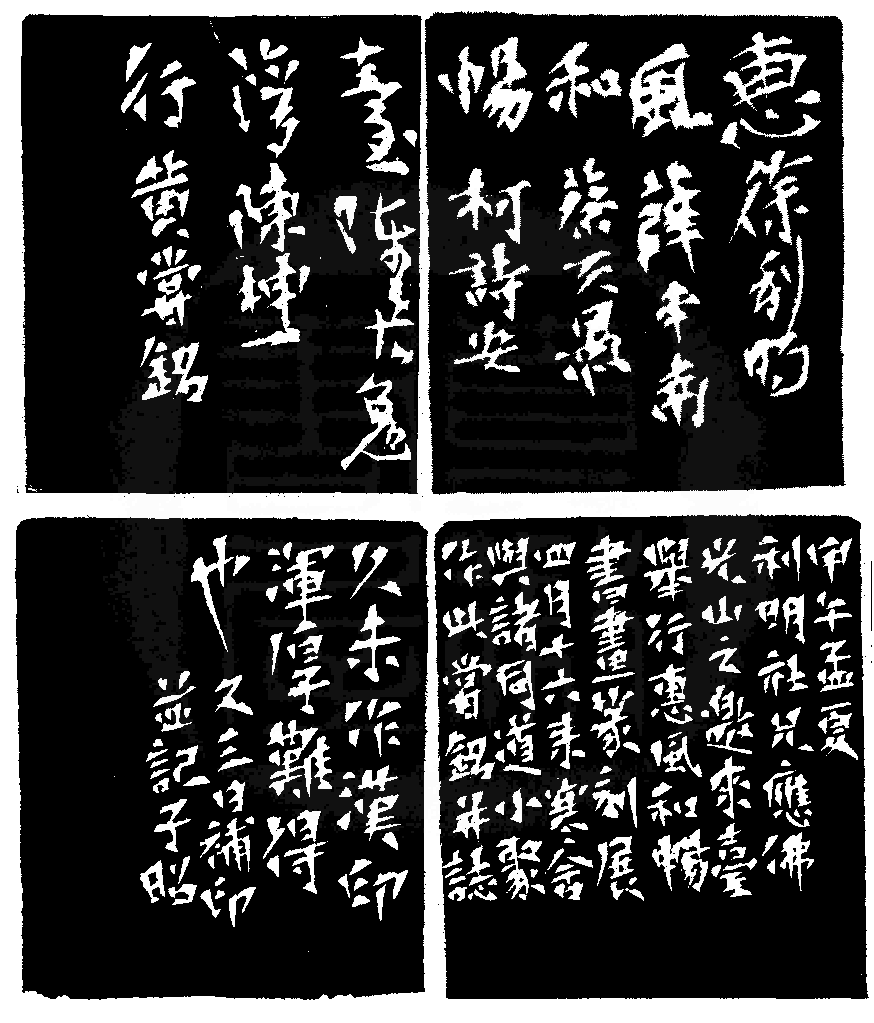 惠 徐利明
風 薛平南
和 蔡
暢 柯詩安
臺 陳
灣 陳
行 黃嘗銘
甲午孟夏
利明社兄應佛
光山之邀來臺
舉行惠風和暢
書畫篆刻展
四月十六來寒舍
與諸同道小聚
作此嘗銘并誌
久未作漢印
渾厚難得
也 又三日補印
並記子昭